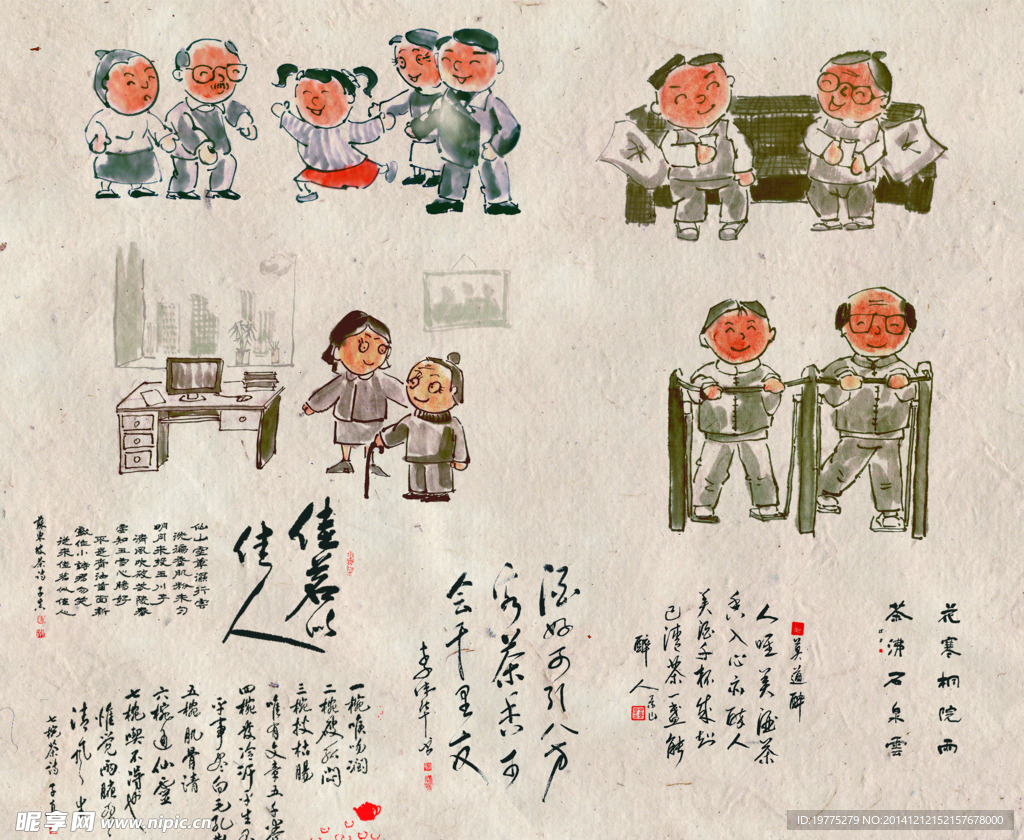 仙山灵草湿行云
洗遍香肌粉未匀
明月来投玉川子
清风吹破武陵春
要知玉雪心肠好
不是膏油首面新
戏作小诗君勿笑
从来佳茗似佳人
苏东坡茶诗
佳茗以
佳人
酒好可引八方
客茶香可
会千里友
莫道醉
人唯美酒茶
香入心亦醉人
美酒千杯成知
己清茶一盏能
醉人
花寒桐院雨
茶沸石泉云
一碗喉吻润
二碗破孤闷
三碗枝枯肠
唯有文章五千卷
四碗发冷汗平生不
平事尽向毛孔
五碗肌骨清
六碗通仙灵
七碗喫不得也
惟觉两腋习
清风生
七碗茶诗
昵享网 www.nipic.cn
ID:19775279 NO:20141212152157678000